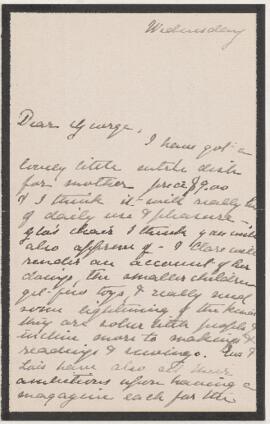 Wednesday
Dear George,
I have got a
lovely little entrée dish
for mother price $9.00
& I think it will really be
of daily use & pleasure -
chair I think you will
also approve of - Clare will
render an account of her
doings, the smaller children
get fine toys & really need
some lightening of the kind
they are sober little people &
incline more to makings &
readings & sewings.
Lois have also set their
ambitions upon having a
magazine each for the